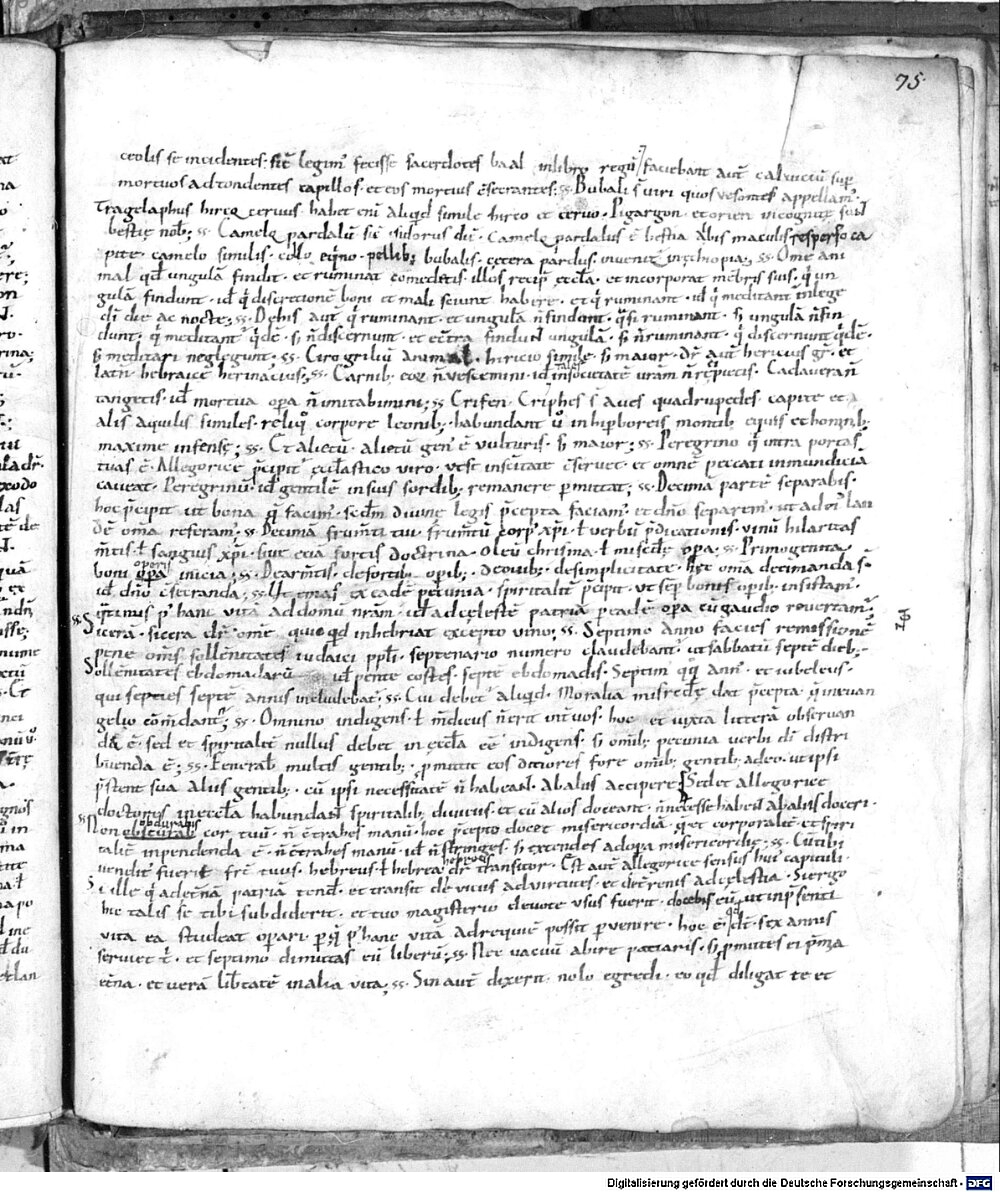 75
ceolis se incidentes· sic̄ legim̄ fecisse sacerdotes baal in libro regū / faciebant aut̄ caluiciū sup̄
mortuos adtondentes capillos· et eos mortuis c̄secrantes; Bubali s̄ uiri quos uesontes appellam̄·
Tragelaphus hircꝰ ceruus· habet eni aliqd simile hirco et ceruo· Pigargon· et orien incognitę sunt
bestię nob̄; Camelꝰ pardalū sic̄ isidorus dīc̄· Camelꝰ pardalus ē bestia albis maculis resperso ca
pite· camelo similis· collo equino· pellib; bubalis· cetera pardus· inuenit̄ in ęthiopia; Ome ani
mal qd̄ ungulā findit· et ruminat comedetis· illos recip̄ ęccl̄a· et incorporat mēbris suis· q̄ un
gulā findunt· id̄ q̄ discretionē boni et mali sciunt habere· et q̄ ruminant· id̄ q̄ meditant̄ in lege
dī die ac nocte; De his aut̄ q̄ ruminant· et ungulā n̄ findunt· q̄si ruminant· s; ungulā n̄ fin
dunt· q̄ meditant̄ q̄dē· s; n̄ discernunt· et ec̄tra findunt ungulā· s; n̄ ruminant· q̄ discernunt q̄dē·
s; meditari neglegunt· Cirogriliū animal hiricio simile s; maior· Dr̄ aut̄ hericius gr̄· et
latin̄· hebraice herinacius; Carnib; eoꝝ n̄ uescemini· id̄ in societatē urām n̄ recipietis· Cadauera n̄
tangetis· id̄ mortua opa n̄ imitabimini; Grifen· Griphes s̄ aues quadrupedes· capite et
alis aquilis similes· reliqꝰ corpore leonib; habundant ū in hiperboreis montib; equis et hominib;
maxime infense; Et alietū· alietū genꝰ ē uulturis· s; maior; Peregrino q̄ intra portas
tuas ē· Allegoricę p̄cipit̄ ęccl̄astico uiro· ut se in sc̄itate c̄seruet· et omnē peccati inmundiciā
caueat· Peregrinū· id̄ gentilē in suis sordib; remanere p̄mittat; Decimā partē separabis·
hoc p̄cipit ut bona q̄ facim̄· scdm̄ diuinę legis p̄cepta faciam· et dn̄o separem̄· ut ad eiꝰ lau
dē oma referam̄· Decimā frumti tui· frumtū corpꝰ xp̄i· t̄ uerbū p̄dicationis· uinū hilaritas
mtis· t̄ sanguis xp̄i· siue etiā fortis doctrina· Oleū chrisma· t̄ miscdię opa; Primogenita
boni opis inicia; De armtis· de fortib; opib; De ouib; de simplicitate· oma decimanda s̄
id̄ dn̄o c̄secranda; Ut emas ex eadē pecunia· spiritalit̄ p̄cipit· ut semp̄ bonis opib; insistam̄·
q̄tinus p̄ hanc uitā ad domū nrām· id̄ ad cęlestē patriā p̄ eadē opa cū gaudio reuertam̄·
Sicerā· sicera dr̄ ome· quicqd inhebriat excepto uino; Septimo anno facies remissionē
pene oms̄ sollēnitates iudaici ppli· septenario numero claudebant̄· ut sabbatū septē dieb;
Sollēnitates ebdomadarū id̄ pentecostes· septē ebdomadis· Septim̄ qq̄ annꝰ· et iubeleus·
qui septies septē annis includebat̄; Cui debet̄ aliqd· Moralia misc̄dię dat p̄cepta· q̄ in euan
gelio com̄dant̄; Omnino indigens· t̄ mdicus n̄ erit int̄ uos· hoc et iuxta litterā obseruan
dū ē· sed et spiritalit̄ nullus debet in ęccl̄a eē indigens· s; omib; pecunia uerbi dī distri
buenda ē; Fenerabꝰ multis gentib; p̄mittit eos ditiores fore omib; gentib; adeo· ut ipsi
p̄stent sua aliis gentib; cū ipsi necessitatē n̄ habeant ab aliis accipere; Sed et allegorice
doctores in ęccl̄a habundant spiritalib; diuiciis· et cū alios doceant· n̄ necesse habent ab aliis doceri·
Non obdurabis cor tuū· n̄ c̄trahes manū· hoc p̄cepto docet misericordiā q̄ et corporalit̄ et spiri
talit̄ inpendenda ē· n̄ c̄trahes manū· id̄ n̄ stringes· s; extendes ad opa misericordię; Cū tibi
uendit̄ fuerit fr̄ tuus· hebreus t̄ hebrea dr̄ transitor· Est aut̄ allegorice sensus huiꝰ capituli·
Si ille q̄ ad ęt̄nam patriam tendit· et transit de uiciis ad uirtutes· et de t̄renis ad cęlestia· Si ergo
hic talis se tibi subdiderit· et tuo magisterio deuote usus fuerit· docebis eū ut in p̄senti
uita ea studeat opari p̄ q̄ p̄ hanc uitā ad requiē possit puenire· hoc ē qd̄ dic̄t· sex annis
seruiet t̄· et septimo dimittas eū liberū; Nec uacuū abire patiaris· s; p̄mittes ei p̄mia
ęt̄na· et uerā libtatē in alia uita; Sin aut̄ dixerit· nolo egredi· eo qd̄ diligat te et
Digitalisierung gefördert durch die Deutsche Forschungsgemeinschaft · DFG